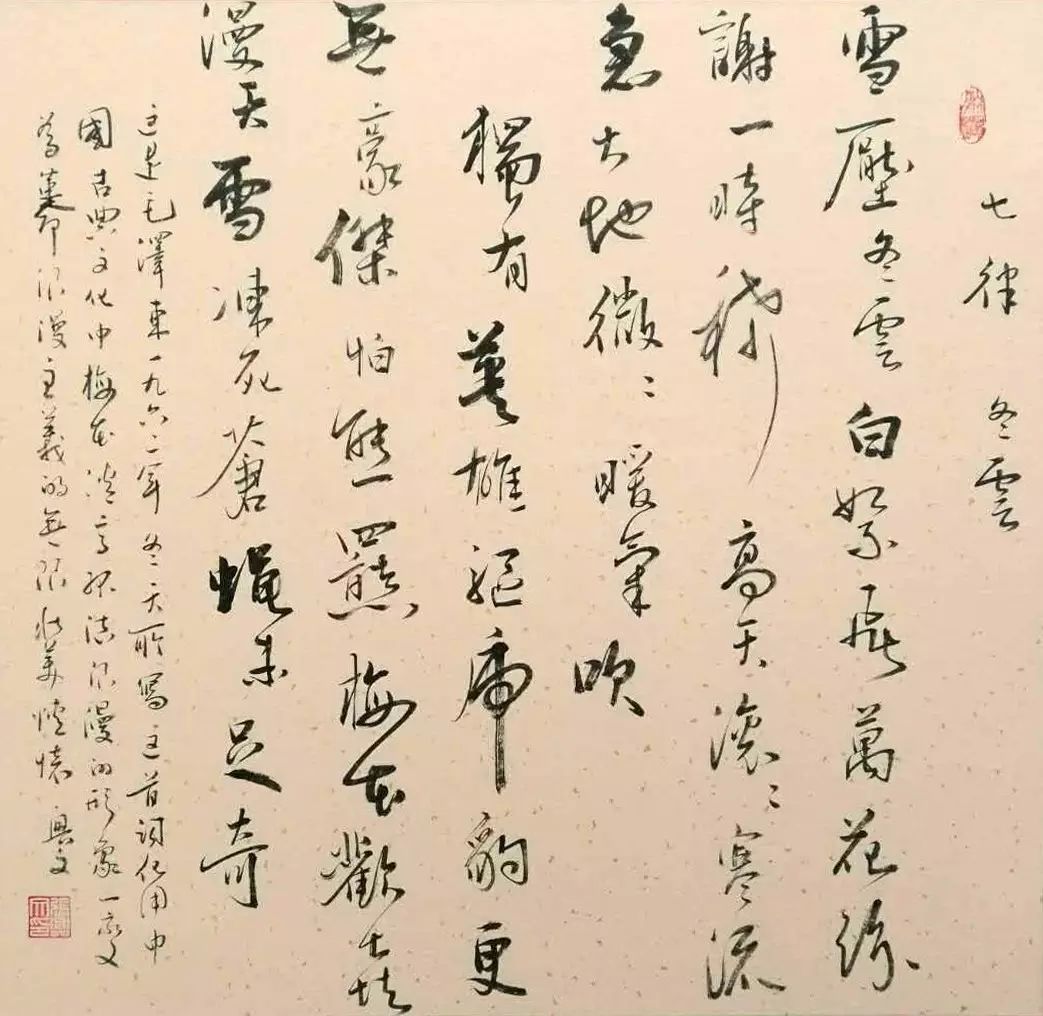 七律 冬雲
雪壓冬雲白絮飛萬花紛
謝一時稀 高天滾〻寒流
急大地微〻暖氣吹
獨有英雄驅虎豹更
無豪傑怕熊羆梅花歡喜
漫天雪凍死蒼蠅未足奇
这是毛澤東一九六二年冬天所寫这首詞化用中
國古典文化中梅花高洁浪漫的形象一
為革命浪漫主義的無限壯美懷 興文